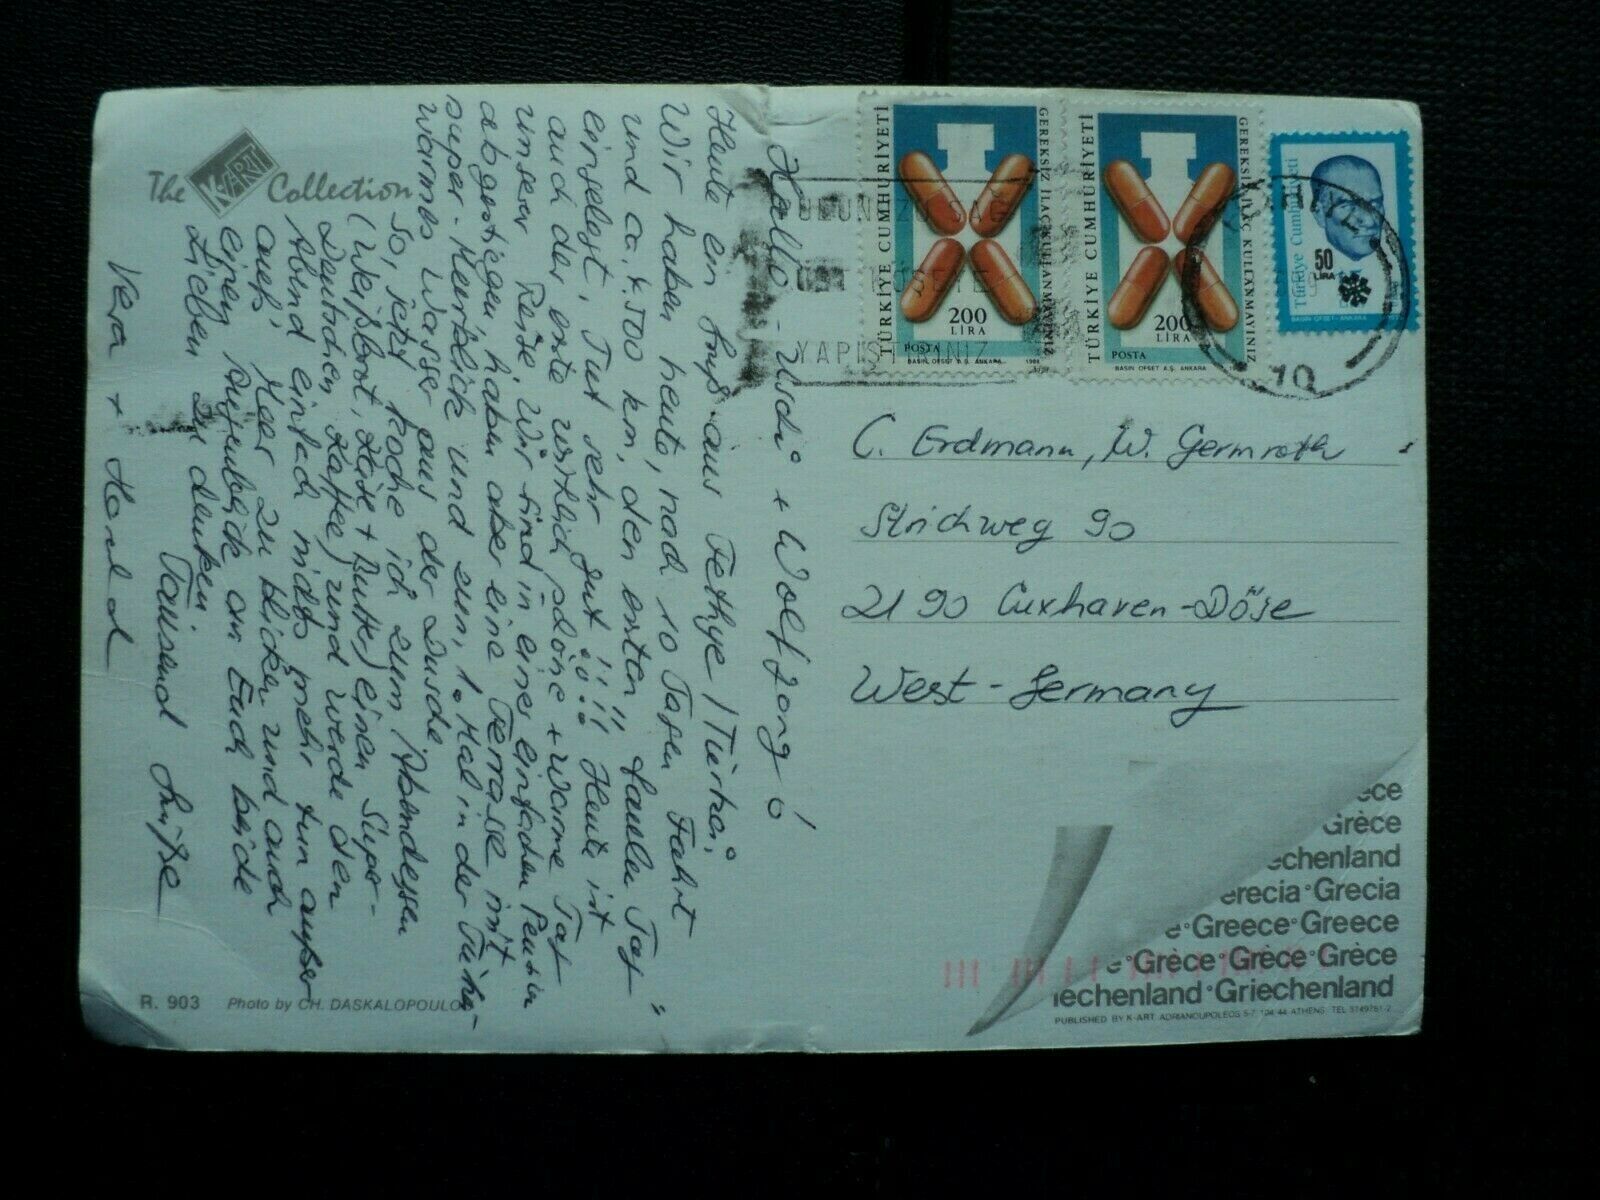 The K-ART Collection
Hallo - Uschi + Wolfgang!
Heute ein Gruß aus Fethye / Türkei.
Wir haben heute, nach 10 Tagen Fahrt
und ca. 4.500 km, den ersten "faulen Tag"
eingelegt. Tut sehr gut!!! Heute ist
auch der erste wirklich schöne + warme Tag
unserer Reise. Wir sind in einer einfachen Pension
abgestiegen, haben aber eine Terrasse mit
super-Meerblick und zum 1. Mal in der Türkei
warmes Wasser aus der Dusche.
So, jetzt koche ich zum Abendessen
(Weißbrot, Käse + Butter) einen Super-
Deutschen Kaffee, und werde den
Abend einfach nichts mehr tun außer
aufs Meer zu blicken und auch
einen Augenblick an Euch beide
Lieben zu denken.
Tausend Grüße
Vera +
R. 903 Photo by CH. DASKALOPOULOS
TÜRKİYE CUMHURİYETİ
GEREKSİZ İLAÇ KULLANMAYINIZ
200
LİRA
POSTA
BASIN OFSET A.Ş. ANKARA
TÜRKİYE CUMHURİYETİ
GEREKSİZ İLAÇ KULLANMAYINIZ
200
LİRA
POSTA
BASIN OFSET A.Ş. ANKARA
Türkiye Cumhuriyeti
50
LİRA
BASIN OFSET - ANKARA
SAĞ
KÖŞEYE
10
C. Erdmann, W. Germroth
Strichweg 90
2190 Cuxhaven-Döse
West-Germany
ece
Grèce
echenland
erecia°Grecia
e°Greece°Greece
e°Grèce°Grèce°Grèce
iechenland°Griechenland
PUBLISHED BY K-ART. ADRIANOUPOLEOS 5-7, 104 44 ATHENS. TEL 5149761-2